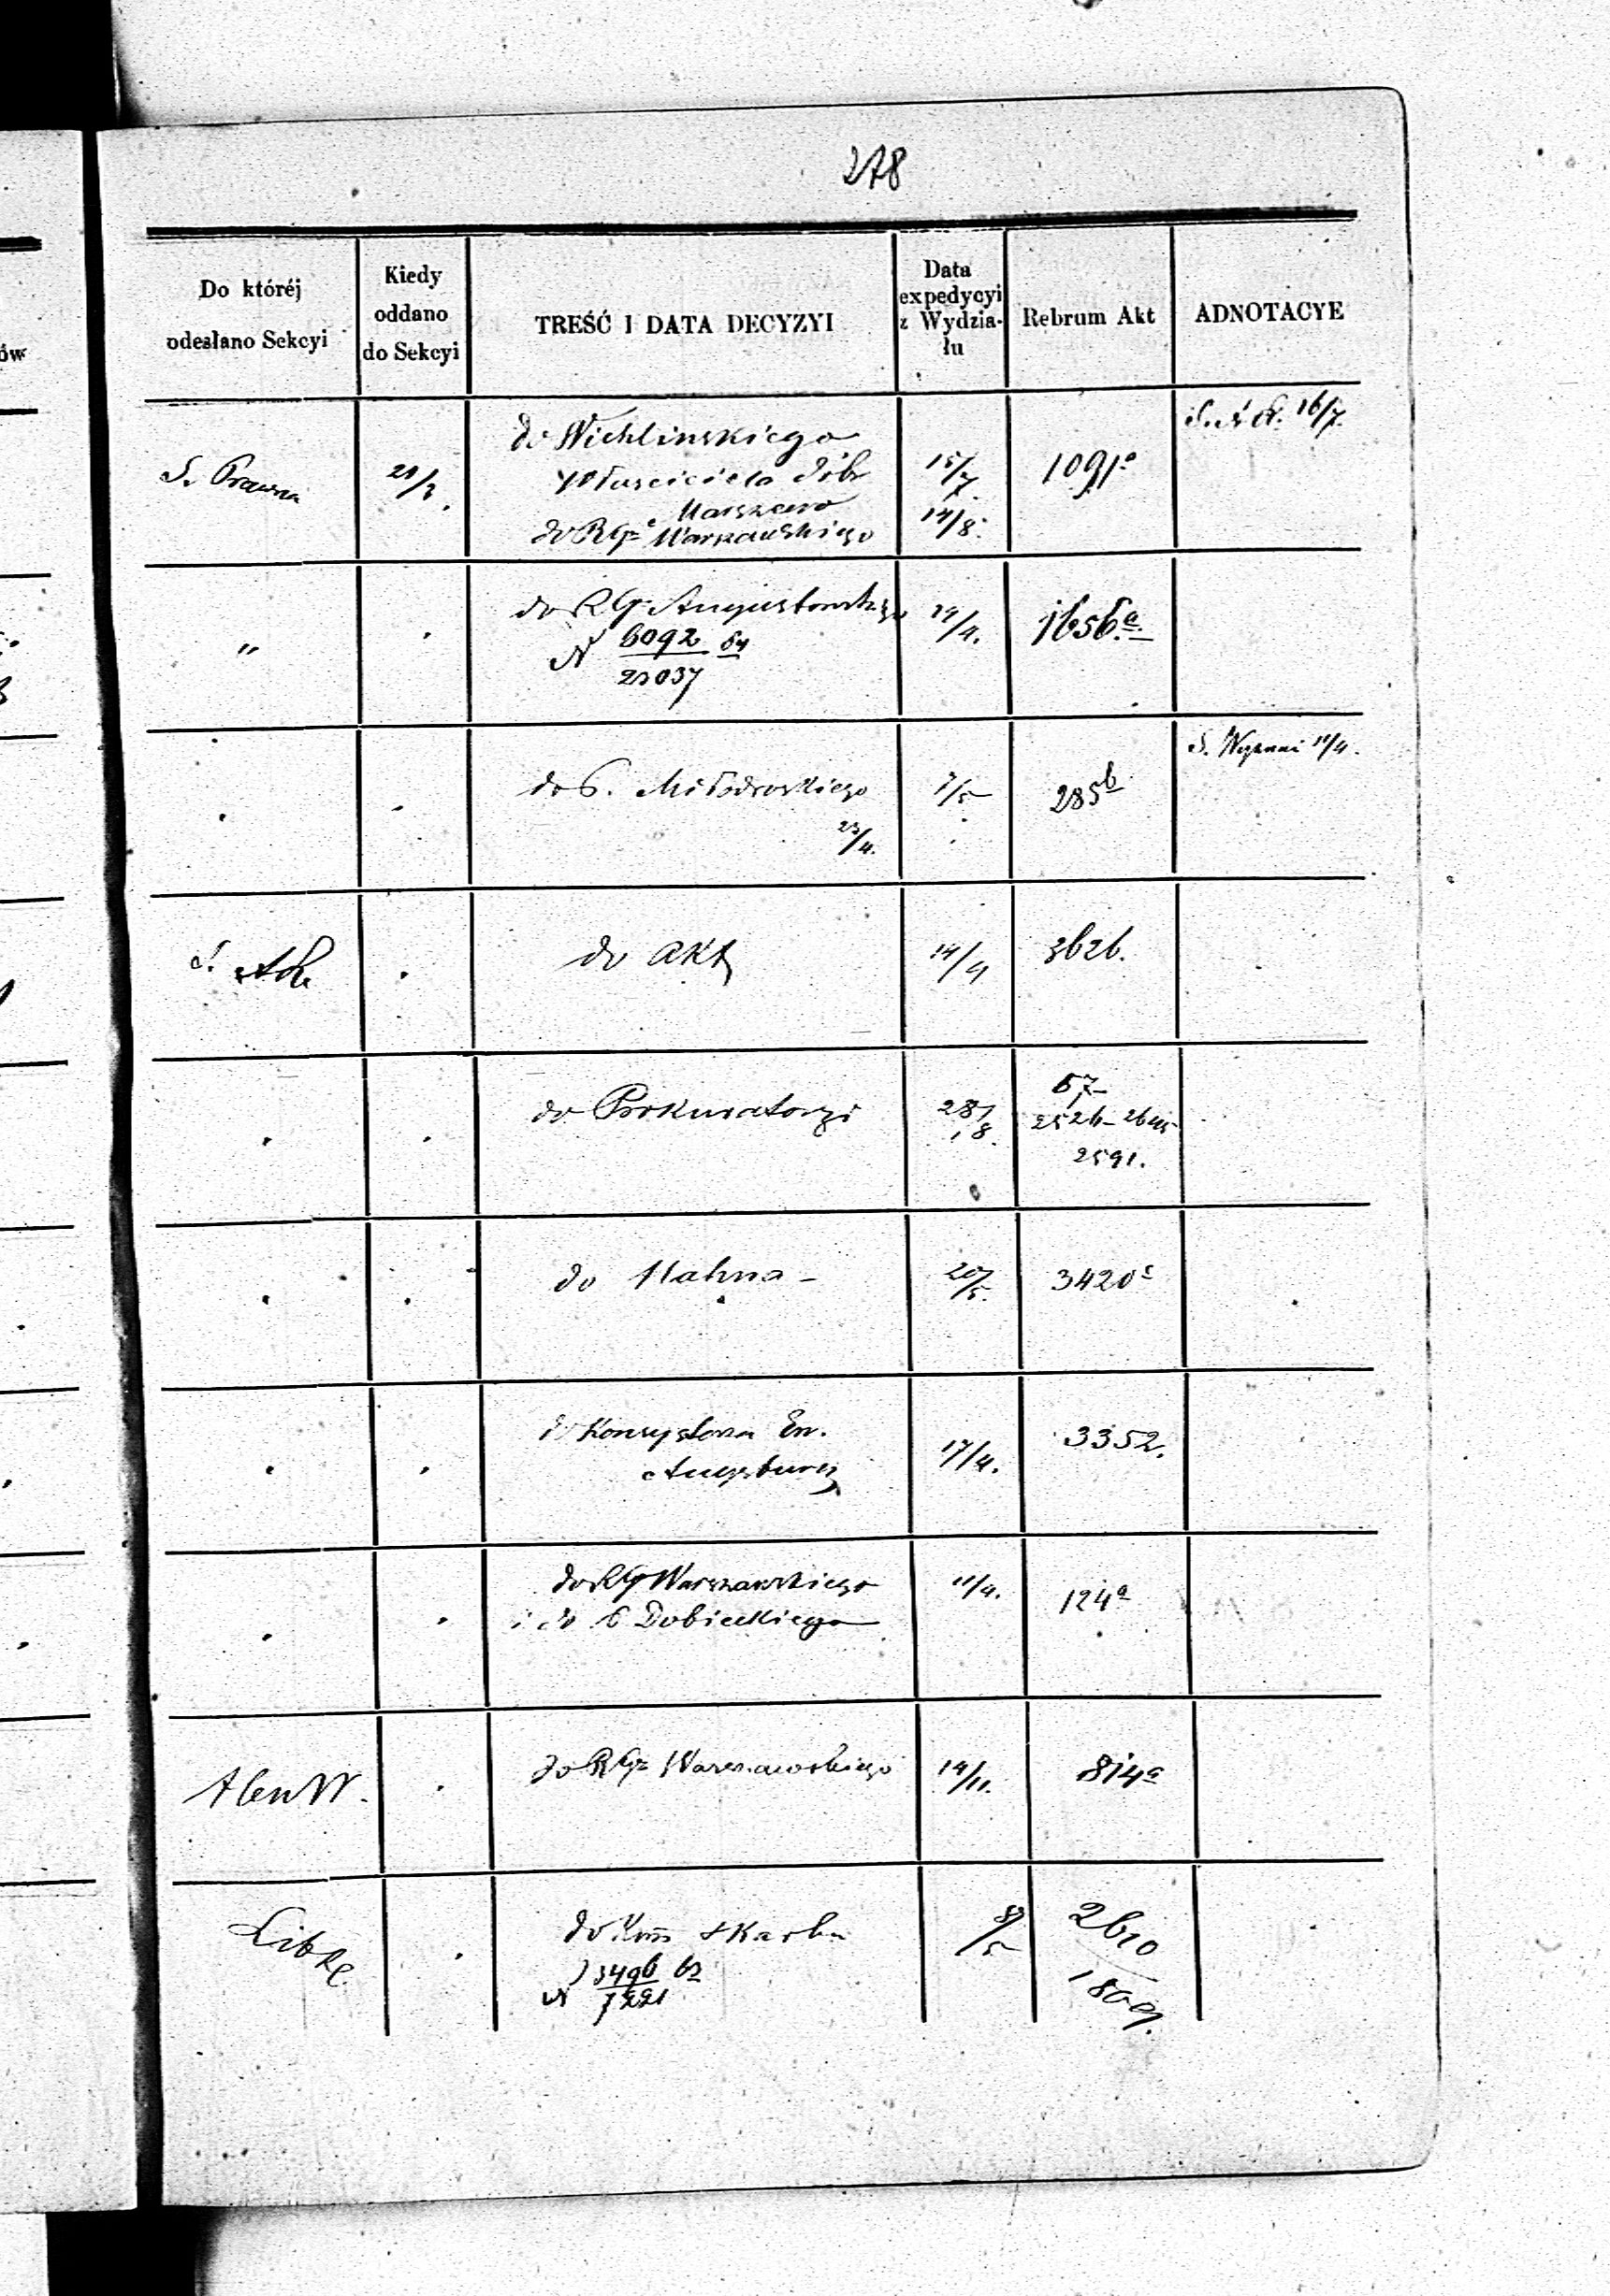 278
Do któréj
odesłano Sekcyi
Kiedy
oddano
do Sekcyi
TREŚĆ I DATA DECYZYI
Data
expedycyi
z Wydzia-
łu
Rebrum Akt
ADNOTACYE
S. Prawna
21/3.
do Wichlinskiego
Właściciela dóbr
do RGo Warszawskiego
15/7.
14/8.
1091a
16/7.
"
do RG Augustowskiego
N 6092 / 23037 54
14/4.
1656a.
do P. Miłodrowskiego
23/4.
7/5
285b
11/4.
do akt
14/4
3626.
do Prokuratoryi
28/8.
57-
2591.
do Hahna -
20/5.
3420c
do Konsystorza Ew.
Augsburg
17/4.
3352.
do RG Warszawskiego
i do P Dobieckiego
11/4.
124a
do RGo Warszawskiego
14/11.
814a
do Kom Skarbu
N 3496 / 7221 62
8/5
2610
1809.